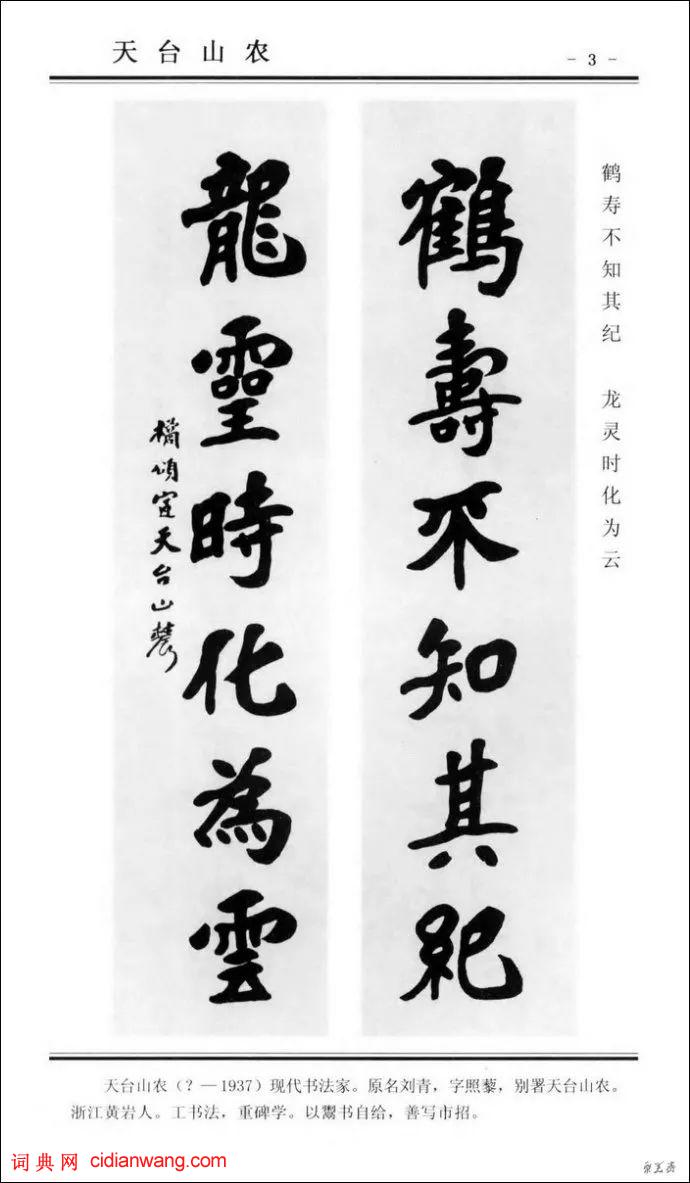 天台山农
- 3 -
鹤寿不知其纪 龙灵时化为云
鶴壽不知其紀
龍靈時化為雲
橘頌室天台山農
天台山农（？—1937）现代书法家。原名刘青，字照藜，别署天台山农。
浙江黄岩人。工书法，重碑学。以鬻书自给，善写市招。
词典网 cidianwang.com